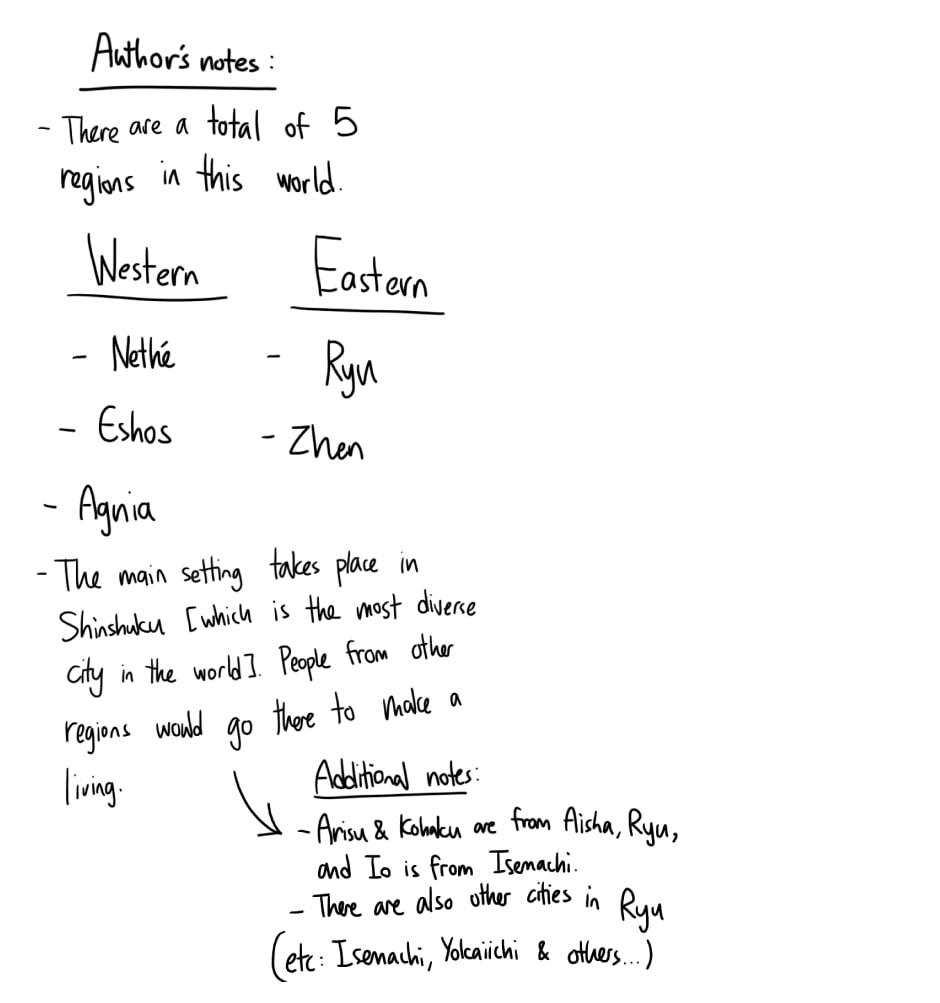 Author's notes:
- There are a total of 5
regions in this world.
Western
- Nethé
- Eshos
- Agnia
Eastern
- Ryu
- Zhen
- The main setting takes place in
Shinshuku [which is the most diverse
city in the world]. People from other
regions would go there to make a
living.
Additional notes:
- Arisu & Kohaku are from Aisha, Ryu,
and Io is from Isemachi.
- There are also other cities in Ryu
(etc: Isemachi, Yokaiichi & others...)